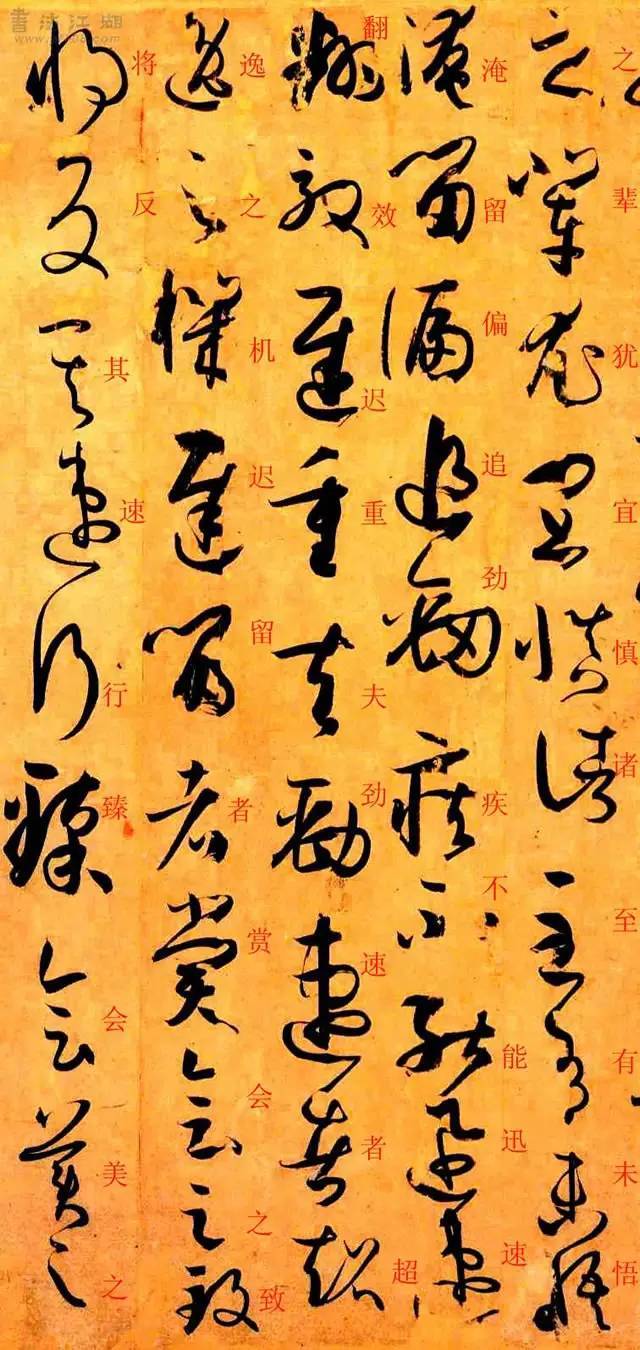 之辈犹宜慎诸至有未悟
淹留偏追劲疾不能迅速
翻效迟重夫劲速者超
逸之机迟留者赏会之致
将反其速行臻会美之
書法江湖